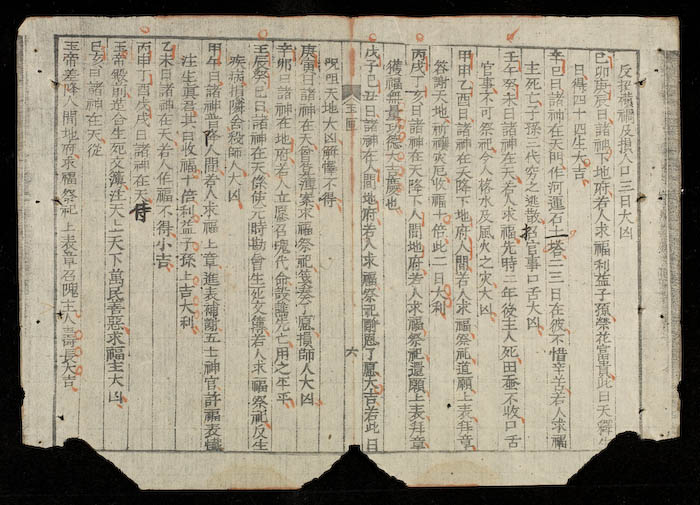 反招損禍及損人口三日大凶
己卯庚辰日諸神下地府若人求福利益子孫榮花富貴此日天
日得四十四生大吉
辛巳日諸神在天門作河運石土塔二三日在彼不惜辛苦若人求福
主死亡子孫三代穷之逃散招官事口舌大凶
壬午癸未日諸神在天若人求福先時二年後主人死田蚕不收口舌
官事不可祭祀令人移水及風火之灾大凶
甲申乙酉日諸神在天降下地府人間若人求福祭祀道願上表拜章
答謝天地祈禳灾厄收福十倍此二日大利
丙戌丁亥日諸神在天降下人間地府若人求福祭祀還願上表拜章
獲福無量功德大吉慶也
戊子己丑日諸神在人間地府若人求福祭祀謝恩了願大吉若此日
玉匣
六
呪咀天地大凶解禳不得
庚寅日諸神在天曾筭簿案求福祭祀笺奏了愿損師人大凶
辛卯日諸神在地府若人立愿召魂代命設醮兇亡用之年平
壬辰癸巳日諸神在天條使元時勘會生死文簿若人求福祭祀反生
疾病損隣舍殺師人大凶
甲午日諸神皆降人間若人求福上章進表補謝五士神官許福表懺
注生真君此日收福十倍利益子孫上吉大利
乙未日諸神在天若人作福不得小吉
丙申丁酉戊戌日諸神在天侍
玉帝殿前造合生死文簿注天上天下萬民善惡求福主大凶
己亥日諸神在天從
玉帝差降人間地府求福祭祀上表章召魂主人壽長大吉